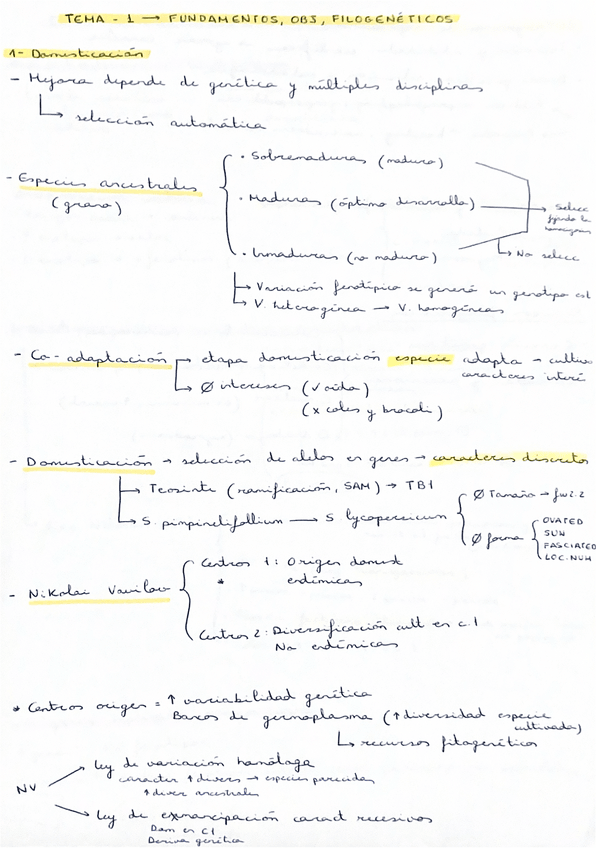 TEMA - 1 → FUNDAMENTOS, OBJ, FILOGENÉTICOS
1- Domesticación
- Mejora depende de genética y múltiples disciplinas
↳ selección automática
- Especies ancestrales
(grano)
· Sobremaduras (maduro)
· Maduras (óptimo desarrollo) → Selecc
· Inmaduras (no maduro)
↳ No selecc
↳ Variación fenotípica se generó un genotipo est
↳ V. heterogénea → V. homogéneas
- Co-adaptación → etapa domesticación especie adapta - cultivo
caracteres interé
↳ Ø intereses (V oída)
(x coles y brocoli)
- Domesticación → selección de alelos en genes → caracteres discretos
→ Teosinte (ramificación, SAM) → TB1
→ S. pimpinelifollium → S. lycopersicum
Ø Tamaño → fw2.2
Ø forma
OVATED
SUN
FASCIATED
LOC.NUM
- Nikolai Vavilov
Centros 1: Origen domest
* endémicas
Centros 2: Diversificación cult en c.1
No endémicas
* Centros origen = ↑ variabilidad genética
Bancos de germoplasma (↑ diversidad especie
cultivada)
↳ recursos fitogenéticos
NV
ley de variación homóloga
caracter ↑ divers → especies parecidas
↑ diver ancestrales
ley de exmancipación caract recesivos
Dom en C1
Deriva genética